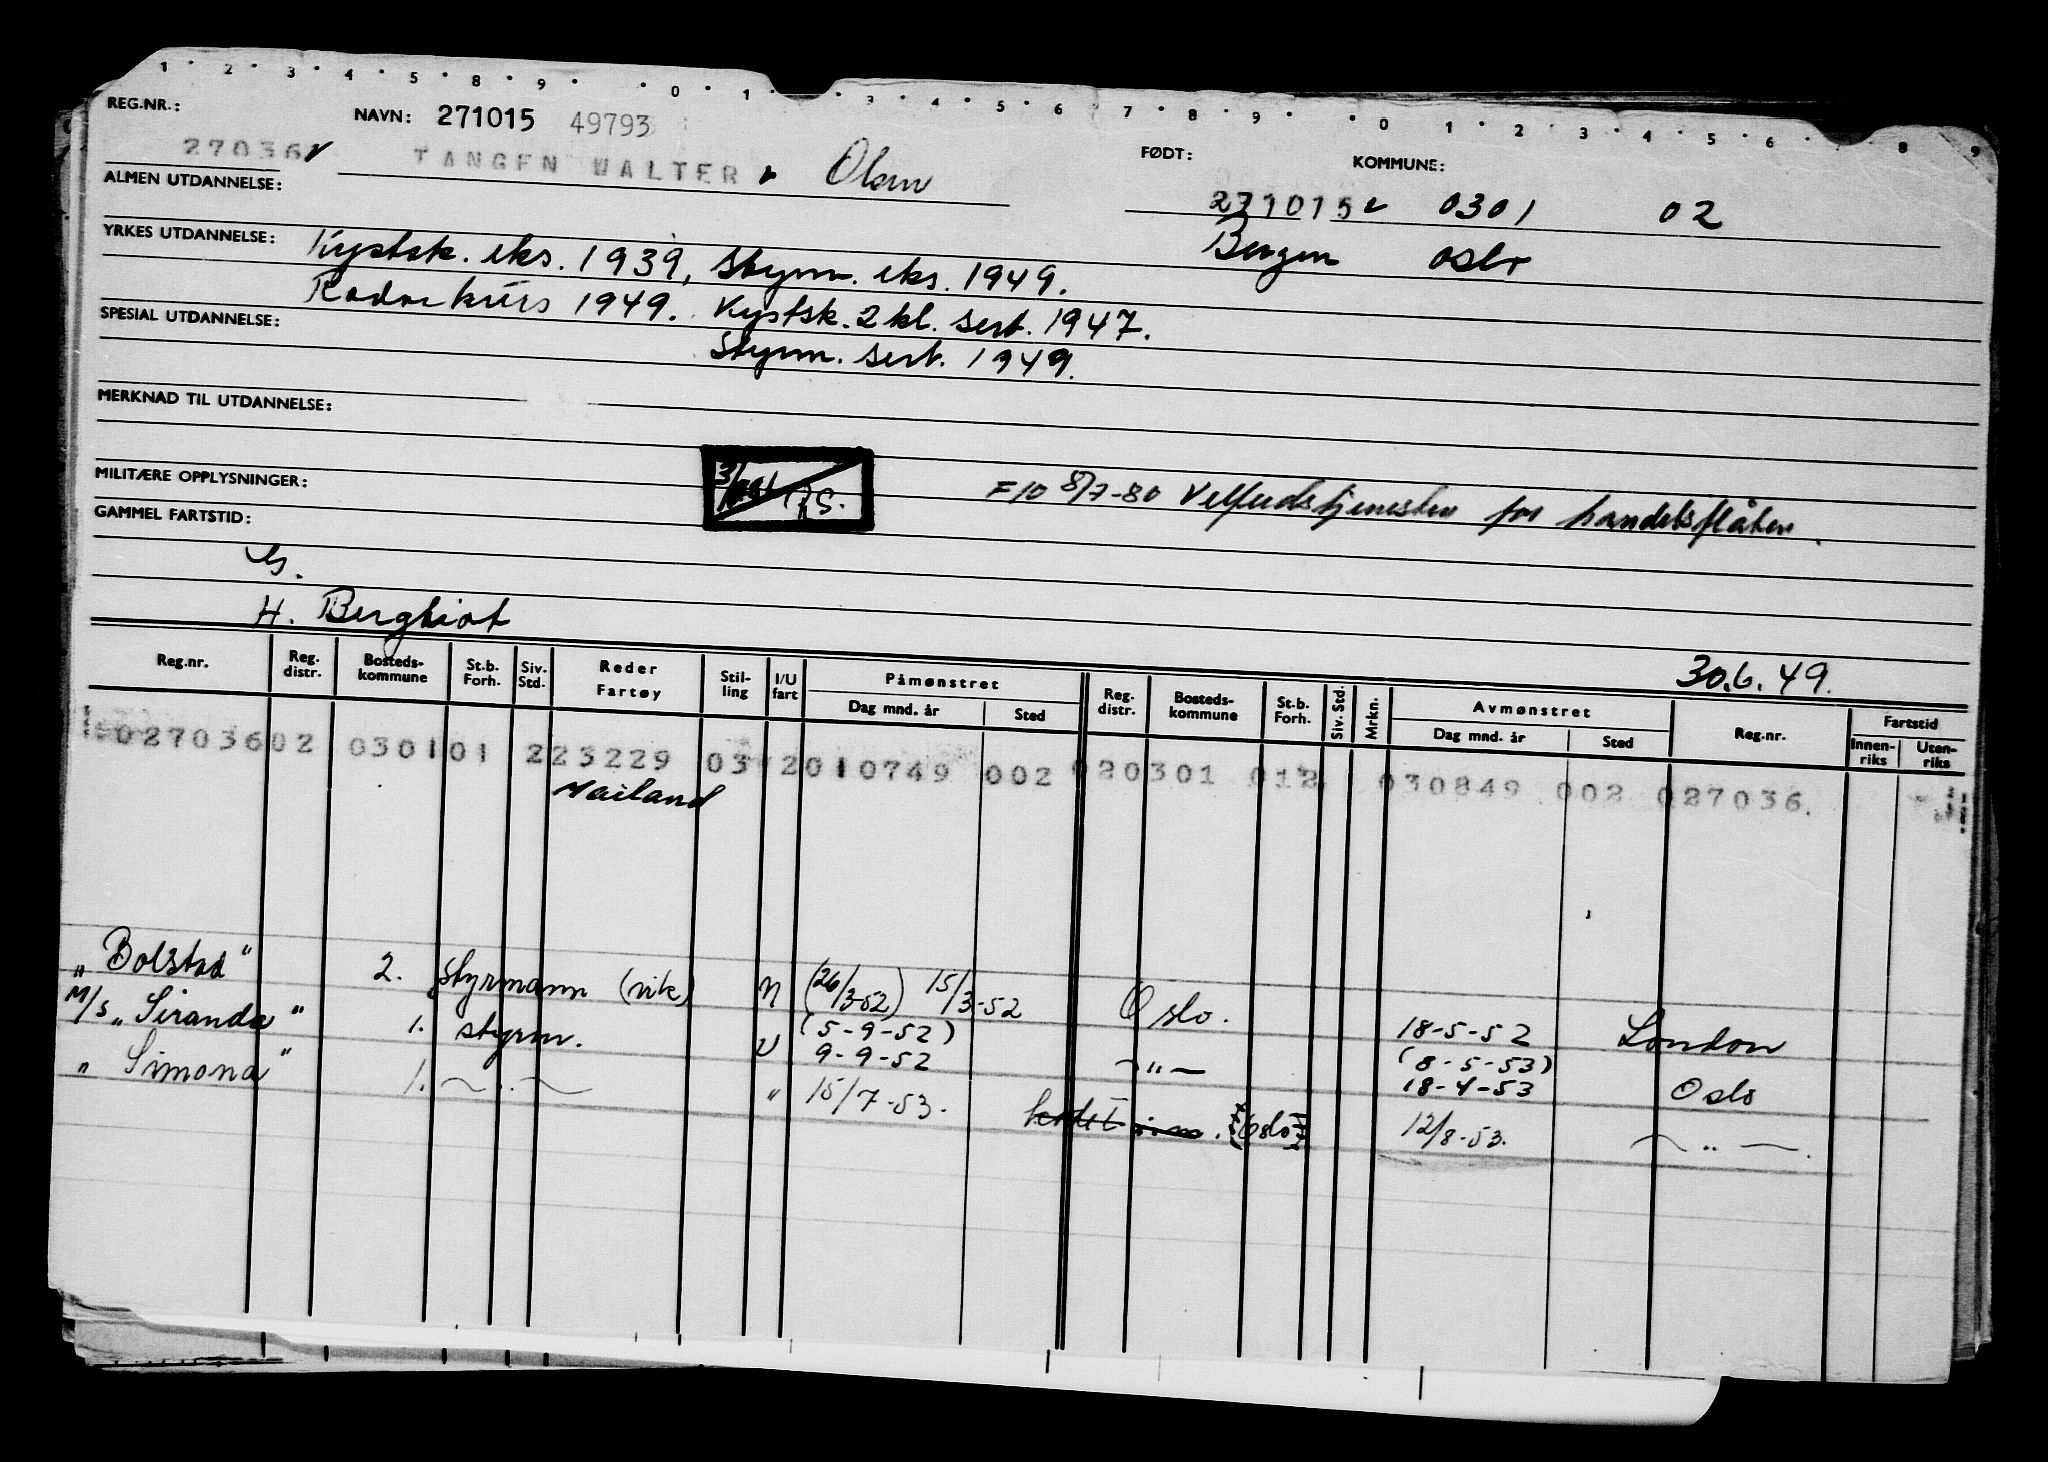 1 2 3 4 5 8 9 0 1 3 4 5 6 7 8 9 0 1 2 3 4 5 6 8 9
REG.NR.: NAVN: 271015 49793 FØDT: KOMMUNE:
27036 TANGEN WALTER Olsen 271015 0301 02
ALMEN UTDANNELSE: Bergen Oslo
YRKES UTDANNELSE: Kystsk. eks. 1939, Styrm. eks. 1949.
Radar kurs 1949. Kystsk. 2 kl. sert. 1947.
SPESIAL UTDANNELSE: Styrm. sert. 1949.
MERKNAD TIL UTDANNELSE:
MILITÆRE OPPLYSNINGER: F10 8/7-80 Velferdstjenesten for handelsflåten.
GAMMEL FARTSTID:
G.
H. Bergliot
30.6.49.
Reg.nr. Reg. distr. Bosteds-kommune St.b. Forh. Siv. Std. Reder Fartøy Stil-ling I/U fart Påmønstret Dag mnd. år Sted Reg. distr. Bosteds-kommune St.b. Forh. Siv. Std. Mrkn. Avmønstret Dag mnd. år Sted Reg.nr. Fartstid Innen-riks Uten-riks
02703602 030101 223229 03 2010749 002 020301 012 030849 002 027036.
Vailand
"Bolstad" 2. styrmann (vik) N (26/3-52) 15/3-52 Oslo. 18-5-52 London
M/S "Siranda" 1. styrm. U (5-9-52) 9-9-52 -"- (8-5-53) 18-4-53 Oslo
" Simona" 1. - " - " 15/7-53. (Oslo) 12/8-53. - " -.